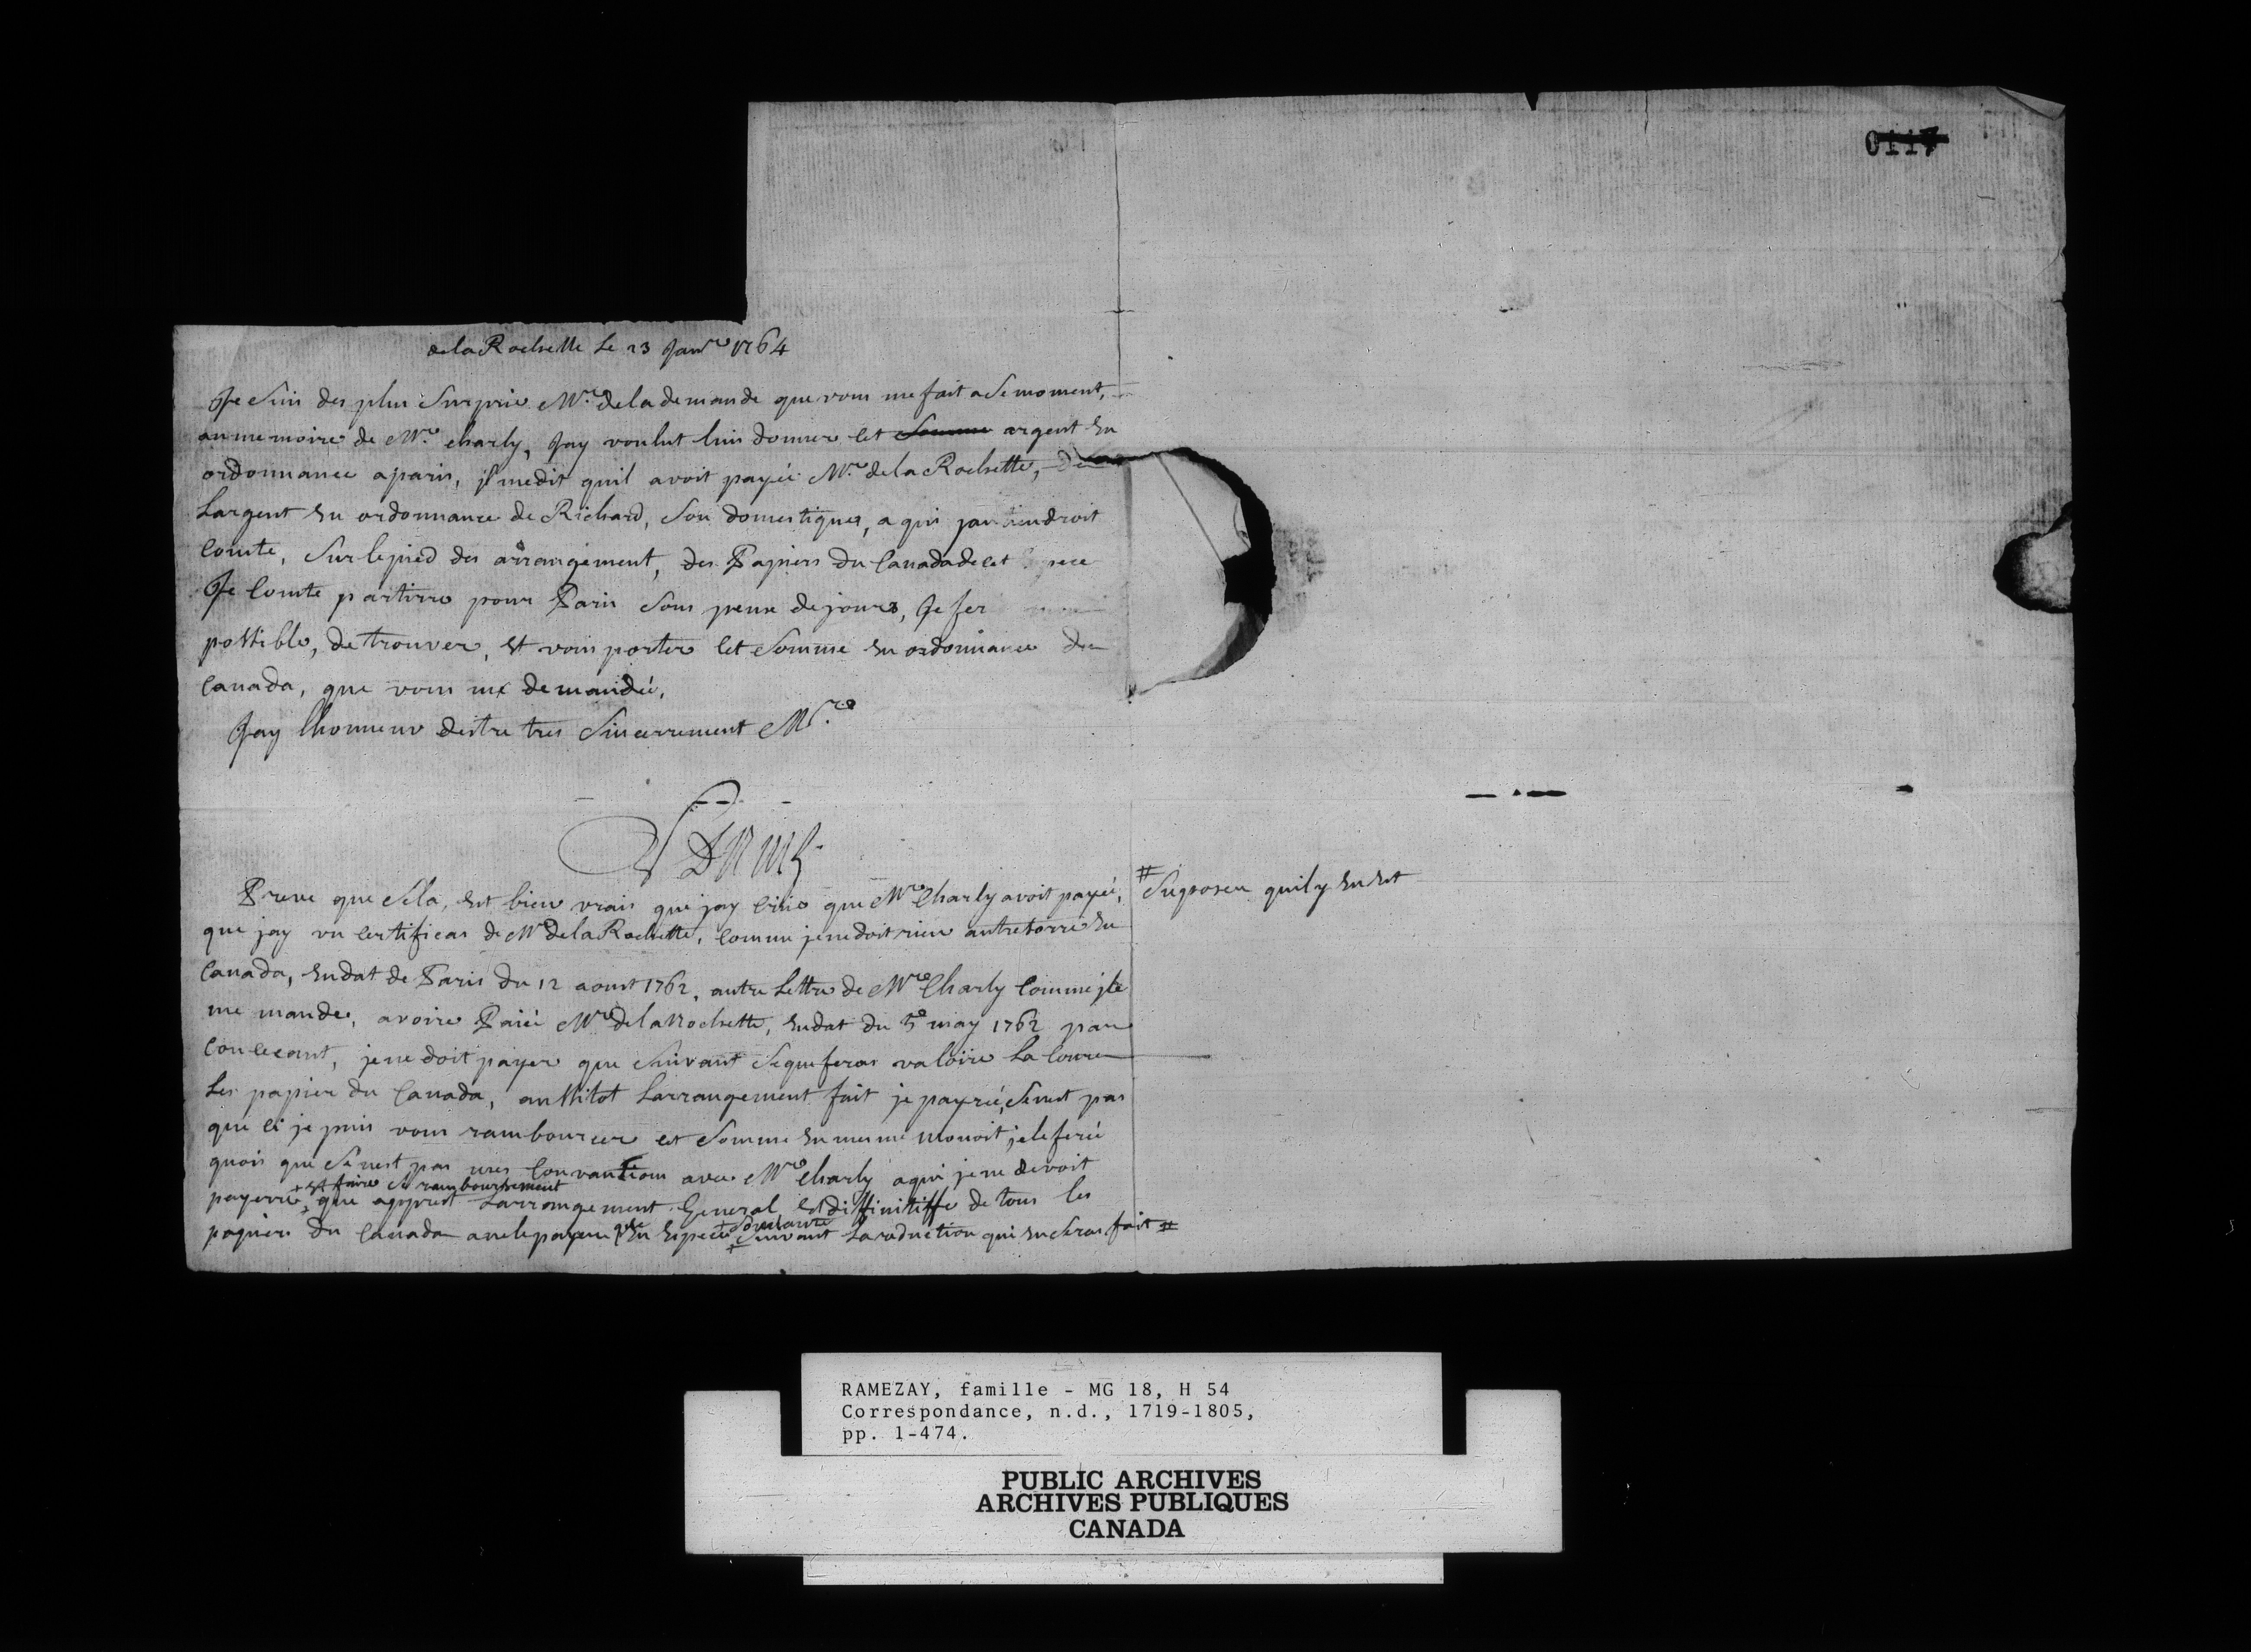 0117
de la Rochelle le 23 Janre 1764
Je suis des plus surpris Mr. de la demande que vous me fait a se moment,
au memoire de Mr. charly, Jay voulut luis donner cet somme argent en
ordonnance a paris, jl me dit quil avoit payée Mr. de la Rochette, de
Largent en ordonnance de Richard, son domestiques, a qui jan tiendroit
Comte, sur le pied des arrangement, des Papiers du Canada de cet
Je Comte partirre pour Paris sous peux de jours, Je fer
possible, de trouver, et vous porter cet somme en ordonnance du
Canada, que vous me demandée,
Jay lhonneur destre tres sincerrement Mr.
Preve que sela, est bien vrais que jay crue que Mr Charly avoit payée,
que jay un Certificas de Mr de la Rochette, Comme je ne doit rien en
Canada, en dat de Paris du 12 aoust 1762, autre Lettre de Mr Charly Comme jl
me mande, avoire Paiée Mr de la Rochette, en dat du 5e may 1762 par
Consecant, je ne doit payer que suivant se que feras valoire La Cour
Les papier du Canada, ausitot Larrangement fait je payrée, se nest pas
que ci je puis vous rambourcer cet somme en meme monoit, je le ferée
quois que se nest pas mes Convantions avec Mr Charly a qui je ne devoit
+ et faire se ramboursement
payerre, + que apprest Larrangement General et diffinitiffe de tous les
papiers du Canada en Espece + sonnante suivant La raduction qui en seras fait #
# Suposeu quil y en est
RAMEZAY, famille - MG 18, H 54
Correspondance, n.d., 1719-1805,
pp. 1-474.
PUBLIC ARCHIVES
ARCHIVES PUBLIQUES
CANADA